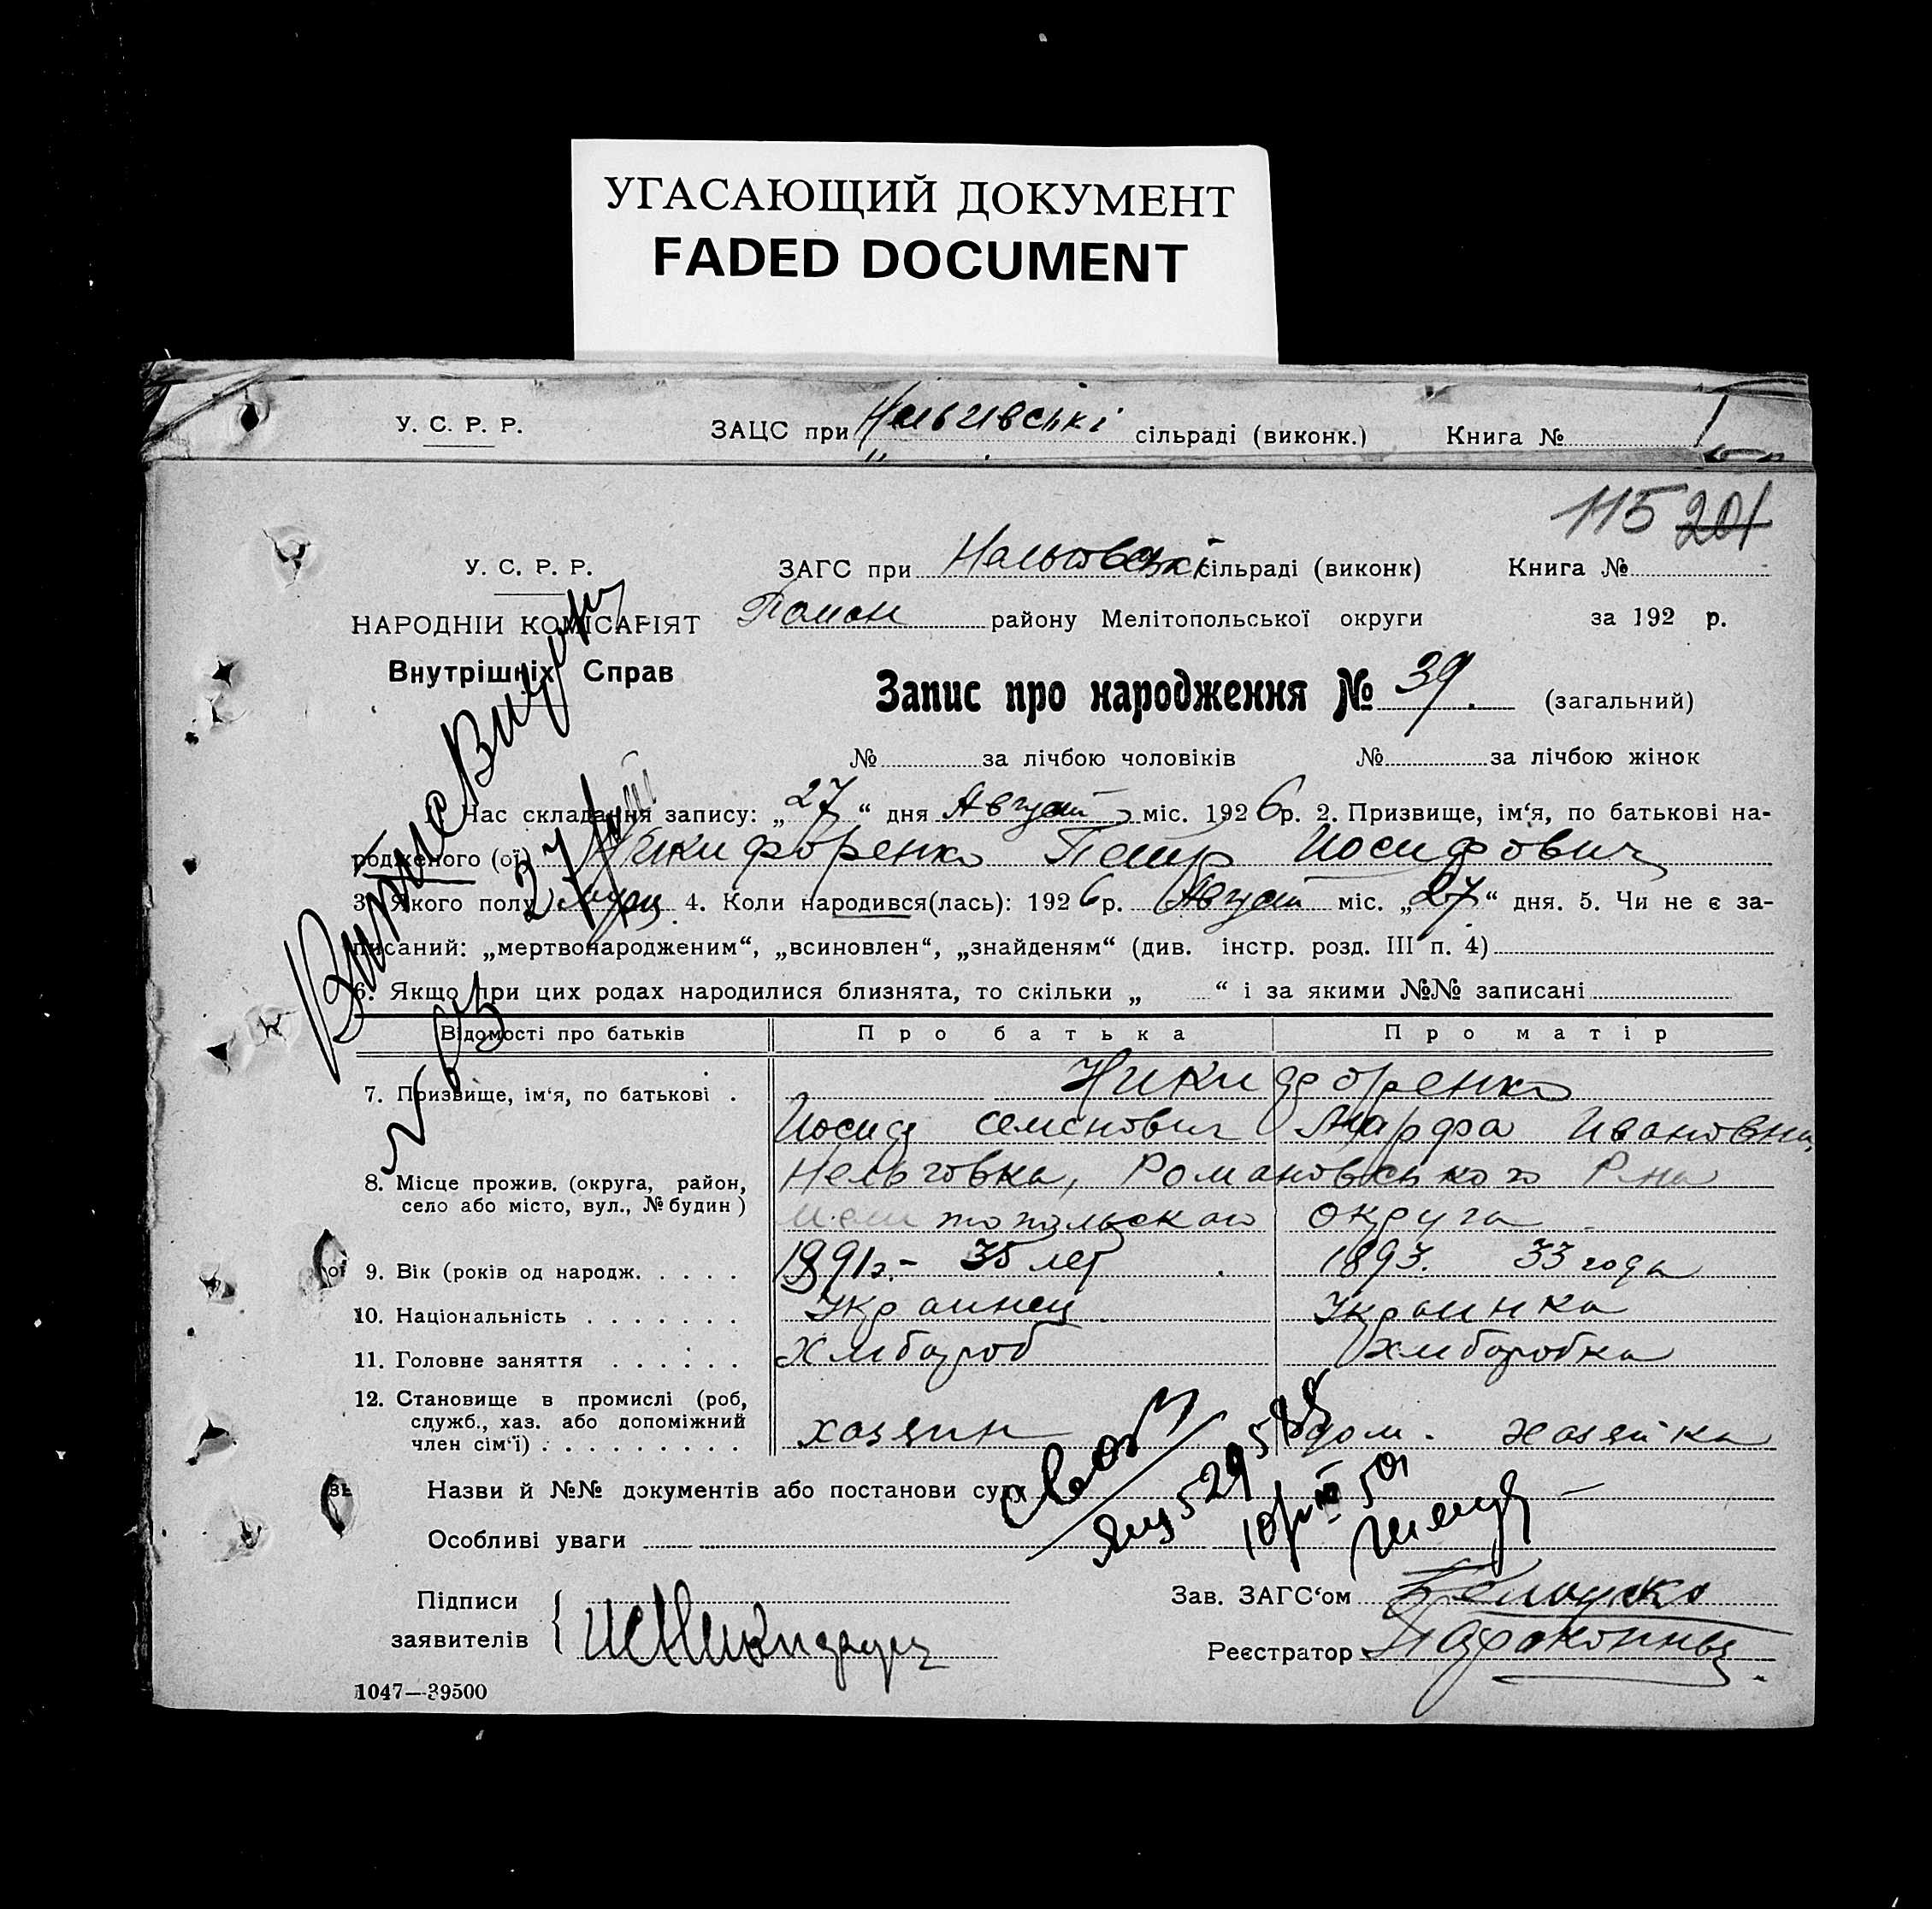 УГАСАЮЩИЙ ДОКУМЕНТ
FADED DOCUMENT
У. С. Р. Р. ЗАЦС при сільраді (виконк.) Книга №
115 201
У. С. Р. Р. ЗАГС при сільраді (виконк) Книга №
НАРОДНІЙ КОМІСАРІЯТ Роман району Мелітопольської округи за 192 р.
Внутрішніх Справ
Запис про народження № 39. (загальний)
№ за лічбою чоловіків № за лічбою жінок
1. Час складання запису: „27“ дня Август міс. 1926р. 2. Призвище, ім‘я, по батькові на-
родженого (ої) Никифоренко Петр Иосифович
3. Якого полу муж. 4. Коли народився(лась): 1926р. Август міс. „27“ дня. 5. Чи не є за-
писаний: „мертвонародженим“, „всиновлен“, „знайденям“ (див. інстр. розд. III п. 4)
6. Якщо при цих родах народилися близнята, то скільки „ “ і за якими №№ записані
Відомості про батьків Про батька Про матір
7. Призвище, ім‘я, по батькові . Никифоренко
Иосиф Семенович Марфа Ивановна
8. Місце прожив. (округа, район, село або місто, вул., № будин ) Нельговка, Романовського Р-на
Мелитопольского округа
9. Вік (років од народж. . . . . 1891г.- 35 лет 1893. 33 года
10. Національність . . . . . . . Украинец Украинка
11. Головне заняття . . . . . . Хлибороб Хлиборобка
12. Становище в промислі (роб, служб., хаз. або допоміжний член сім‘ї) . . . . . . . . . хозяин дом. хозяйка
Назви й №№ документів або постанови суду
Особливі уваги
Підписи
заявителів
Зав. ЗАГС‘ом
Реєстратор
1047—39500